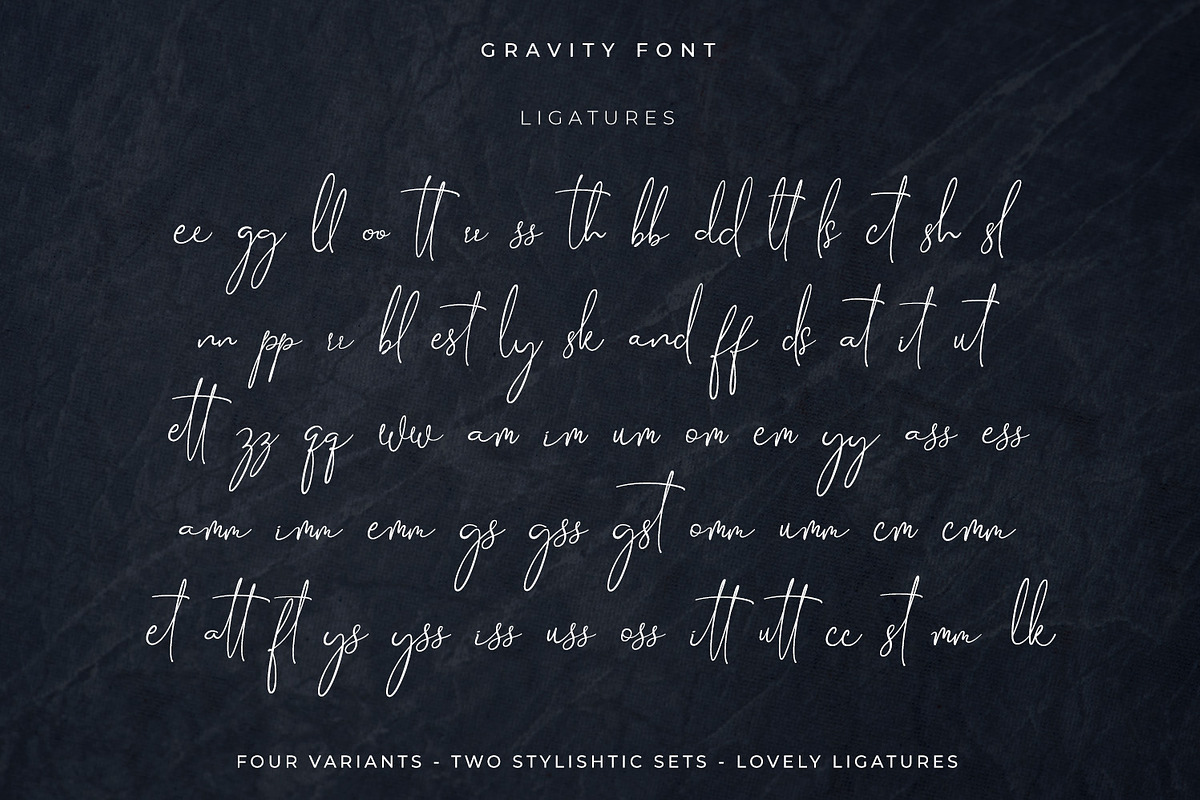 GRAVITY FONT
LIGATURES
ee gg ll oo tt rr ss th bb dd lt ls ct sh sl
nn pp rr bl est ly sk and ff ds at it ut
ett zz qq ww am im um om em yy ass ess
amm imm emm gs gss gst omm umm cm cmm
et att ft ys yss iss uss oss itt utt cc st mm lk
FOUR VARIANTS - TWO STYLISHTIC SETS - LOVELY LIGATURES